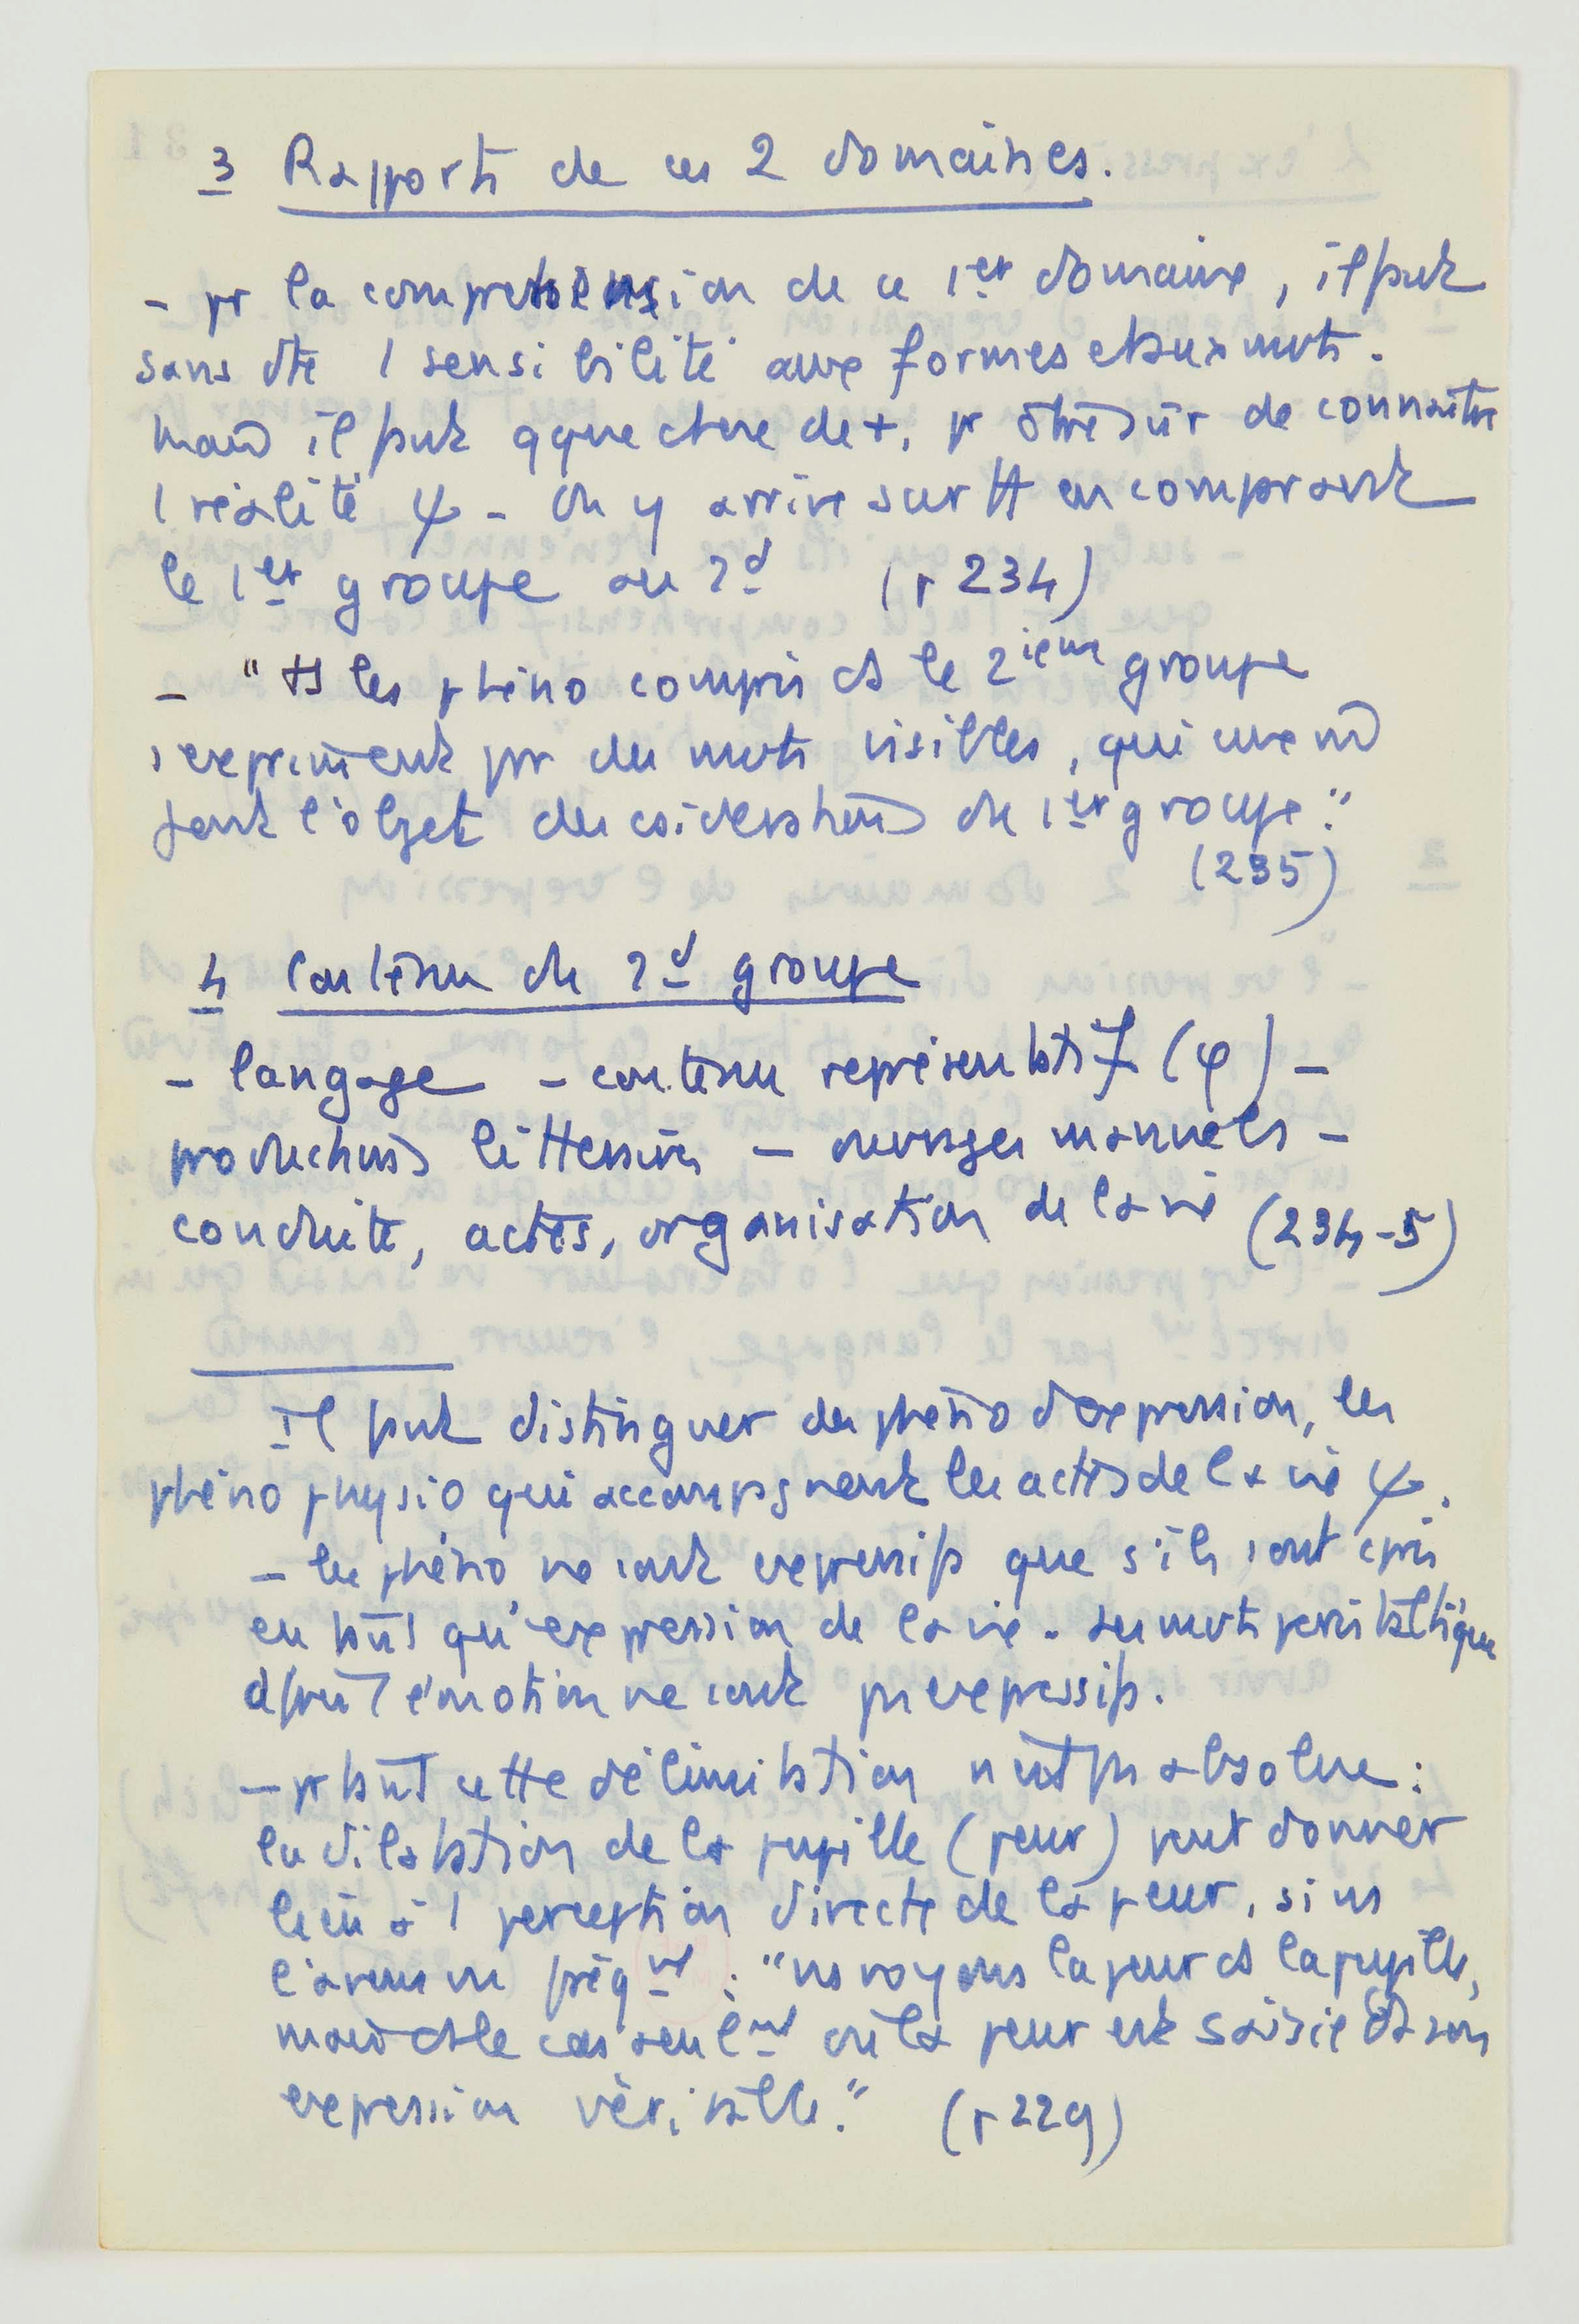 3 Rapports de ces 2 domaines.
- pr la compréhension de ce 1er domaine, il faut
sans dte 1 sensibilité aux formes et aux mvts.
mais il faut qque chose de +, pr être sûr de connaître
1 réalité ψ - On y arrive surtt en comparant
le 1er groupe au 2d (p 234)
- "ts les phéno compris ds le 2ième groupe
s'expriment par des mvts visibles, qui eux aussi
font l'objet des csidérations du 1er groupe."
(235)
4 Contenu du 2d groupe
- langage - contenu représentatif (φ) -
productions littéraires - ouvrages manuels -
conduite, actes, organisation de la vie (234-5)
Il faut distinguer des phéno d'expression, les
phéno physio qui accompagnent les actes de la vie ψ.
- les phéno ne sont expressifs que s'ils sont cpris
en tant qu'expression de la vie. Les mvts péristaltiques
d'1 émotion ne sont pas expressifs.
- prtant cette délimitation n'est pas absolue :
la dilatation de la pupille (peur) peut donner
lieu à 1 perception directe de la peur, si ns
l'avons vu fréqmt : "ns voyons la peur ds la pupille,
mais ds le cas seulmt où la peur est saisie ds son
expression véritable." (p 229)